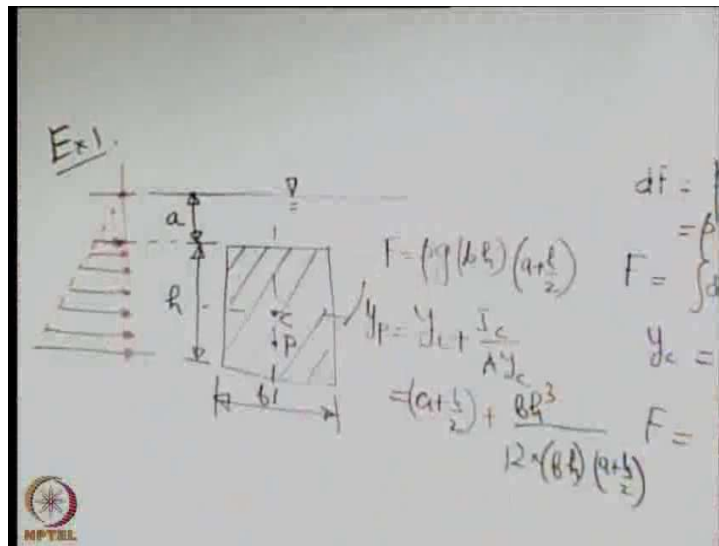 Ex 1.
a
h
c
P
b
F = ρg(bh)(a+h/2)
y_p = y_c + I_c/(A y_c)
= (a+h/2) + bh³/(12×(bh)(a+h/2))
dF =
= ρ
F = ∫d
y_c =
F =
NPTEL